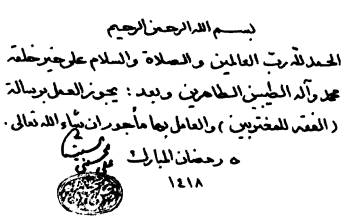 بسم الله الرحمن الرحيم
الحمد لله ربّ العالمين والصلاة والسلام على خير خلقه
محمد وآله الطيبين الطاهرين وبعد : يجوز العمل برسالة
( الفقه للمغتربين ) والعامل بها مأجور ان شاء الله تعالى .
٥ رمضان المبارك
١٤١٨